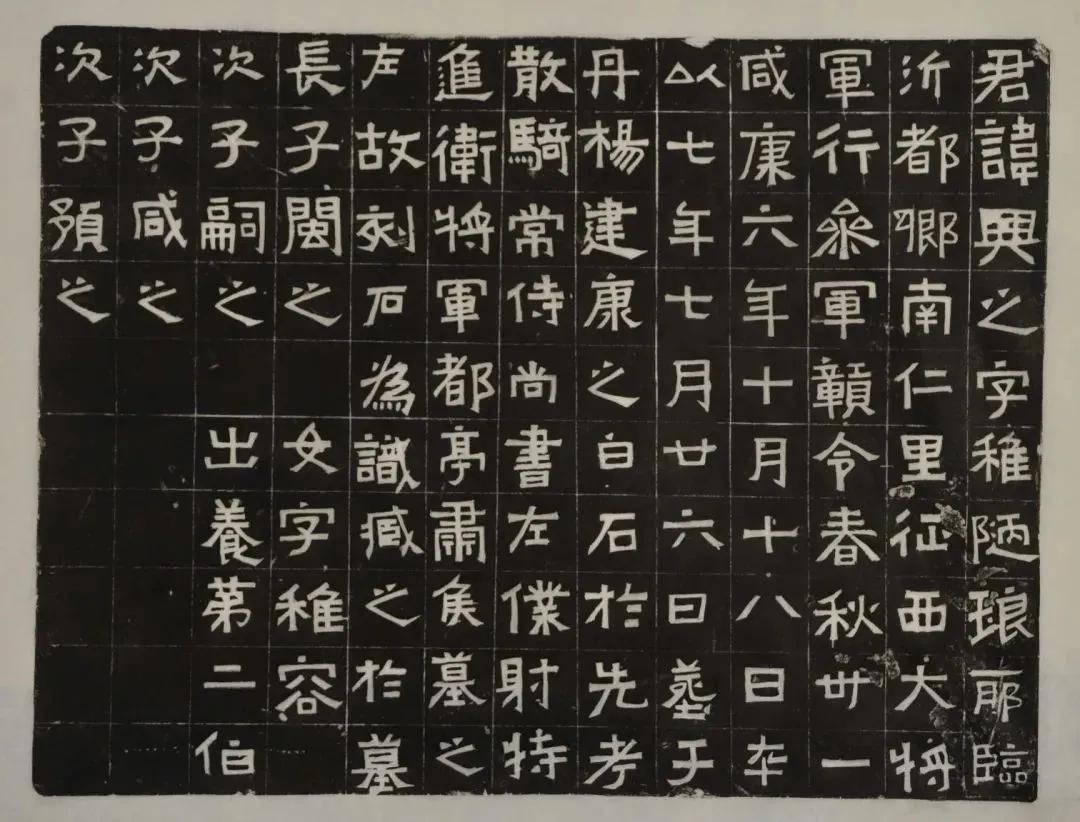 君諱興之字稚陋琅耶臨
沂都鄉南仁里征西大將
軍行參軍贛令春秋卅一
咸康六年十月十八日卒
以七年七月廿六日葬于
丹楊建康之白石於先考
散騎常侍尚書左僕射特
進衛將軍都亭肅侯墓之
左故刻石為識臧之於墓
長子閩之女字稚容
次子嗣之出養第二伯
次子咸之
次子預之